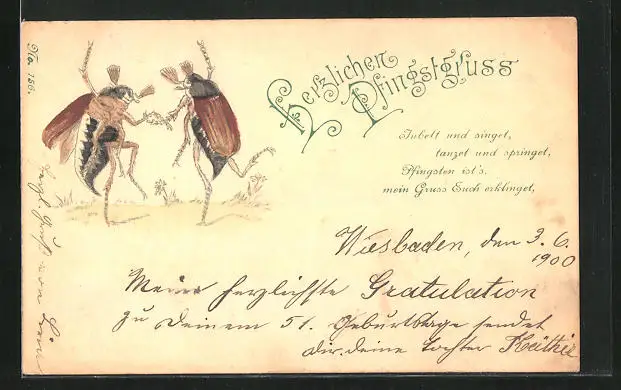 No. 156.
Herzlichen
Pfingstgruss
Jubelt und singet,
tanzet und springet,
Pfingsten ist's,
mein Gruss Euch erklinget,
Wiesbaden, den 3. 6.
1900
Meine herzlichste Gratulation
zu Deinem 51. Geburtstage sendet
dir deine Tochter
Herzl. Gruß von